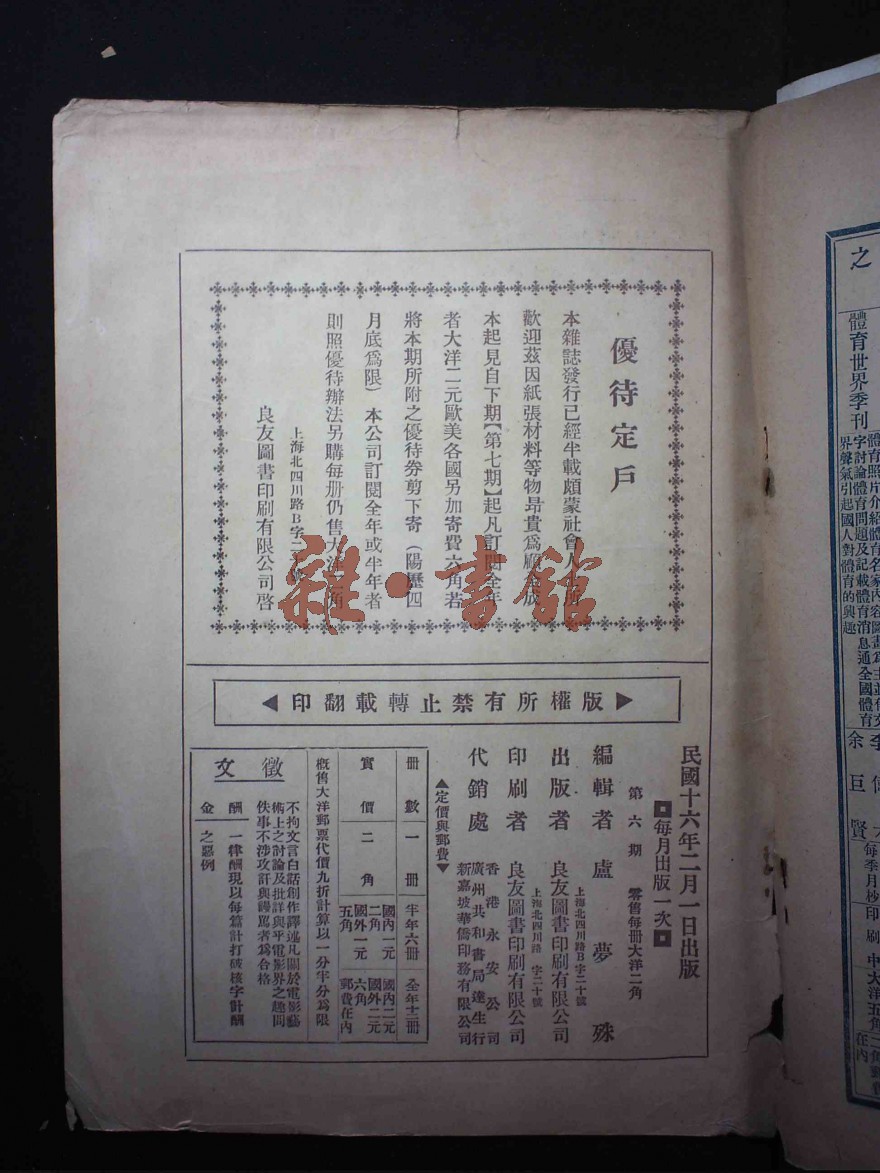 優待定戶
本雜誌發行已經半載頗蒙社會人
歡迎茲因紙張材料等物昂貴爲顧全成
本起見自下期【第七期】起凡訂閱全年
者大洋二元歐美各國另加寄費六角若
將本期所附之優待券剪下寄（陽歷四
月底爲限）本公司訂閱全年或半年者
則照優待辦法另購每册仍售大洋二角
上海北四川路B字二
良友圖書印刷有限公司啓
版權所有禁止轉載翻印
民國十六年二月一日出版
每月出版一次
第六期 零售每册大洋二角
編輯者 盧夢殊
上海北四川路B字二十號
出版者 良友圖書印刷有限公司
上海北四川路 字二十號
印刷者 良友圖書印刷有限公司
代銷處
香港永安公司
廣州共和書局達生行
新嘉坡華僑印務有限公司
▲定價與郵費▼
册數 一册 半年六册 全年十二册
實價 二角 國內一元二角國外一元五角 國內二元國外二元六角郵費在內
概售大洋郵票代價九折計算以一分半分爲限
徵文
不拘文言白話創作譯述凡關於電影藝
術上之討論及批評與平電影界之趣聞
佚事不涉攻訐與謾駡者爲合格
酬金 一律酬現以每篇計打破核字計酬
之惡例
雜·書館
之
體育世界季刊
體育照片介紹體育名家內容圖畫爲主並有文
字討論體育問題及記載體育消息通全國體育
界聲氣引起國人對體育的興趣
余巨賢
每季月杪印刷
中大洋五角
在內